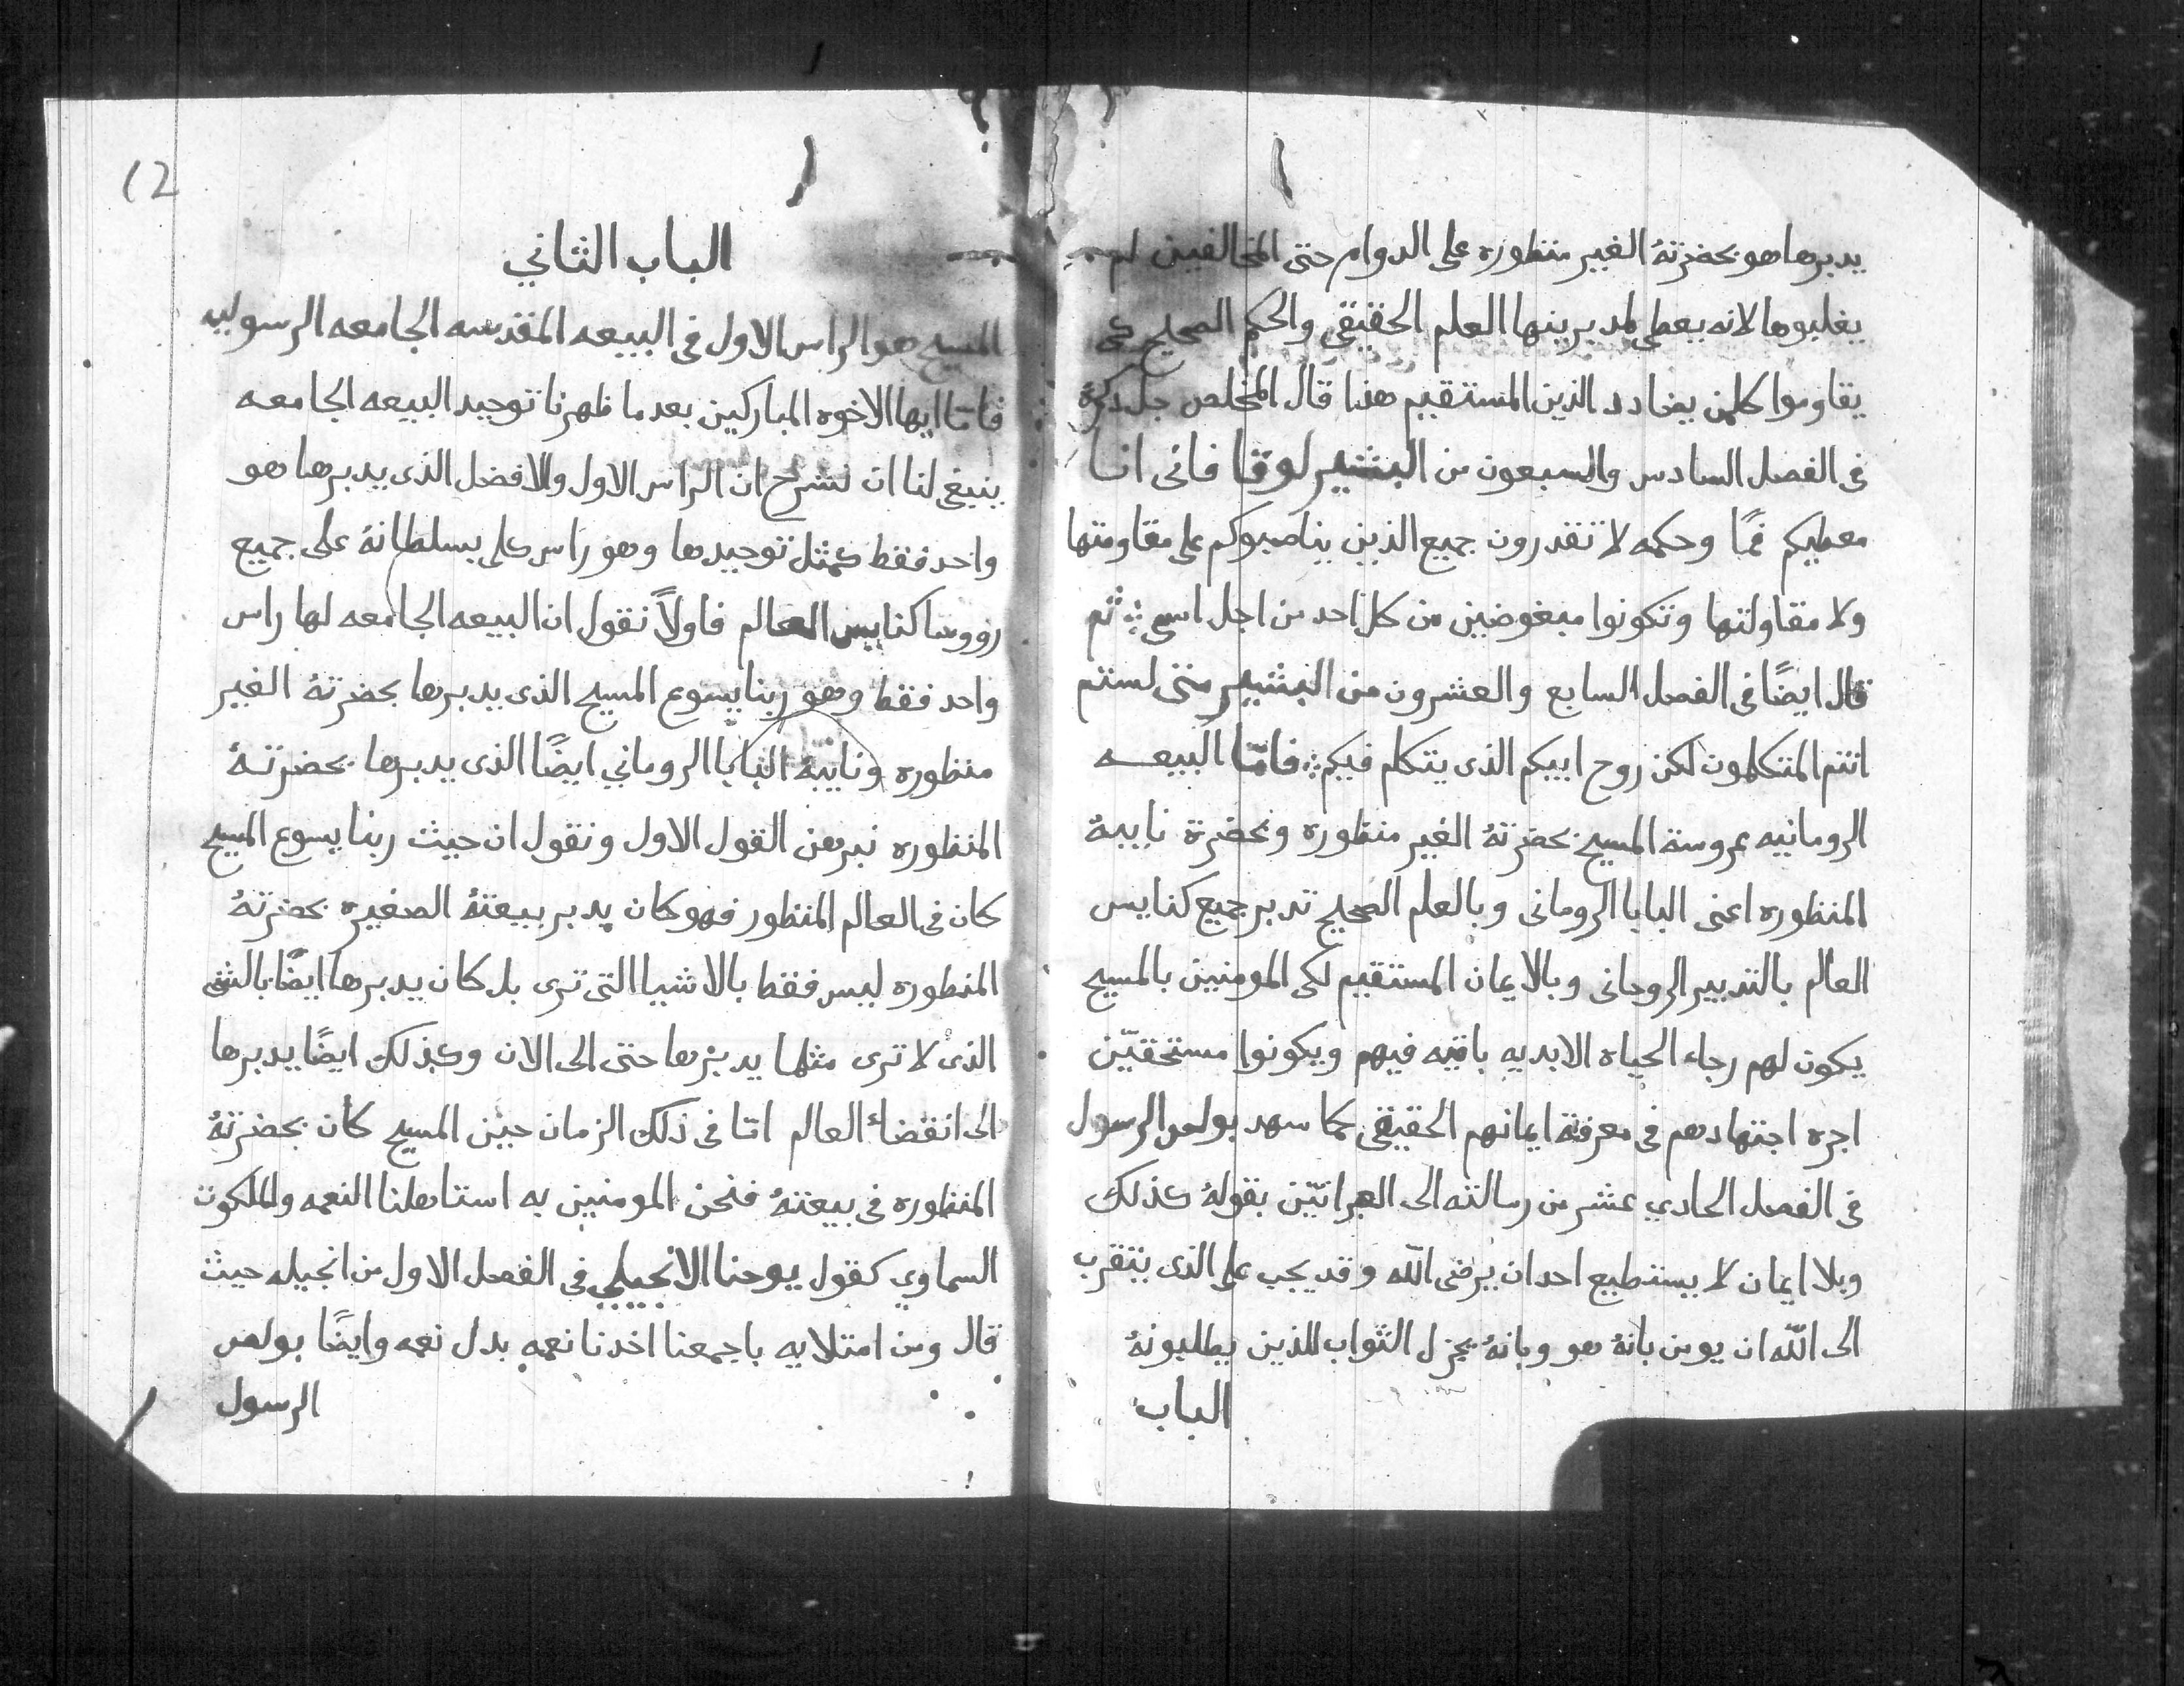 يدبرها هو بحضرته الغير منظوره على الدوام حتى المخالفين لم
يغلبوها لانه يعطى لمدبرينها العلم الحقيقي والحكم الصحيح كى
يقاوموا كلمن يضادد الدين المستقيم هذا قال المخلص جل ذكرهُ
فى الفصل السادس والسبعون من البشير لوقا فانى انا
معطيكم فمًا وحكمه لا تقدرون جميع الذين يناصبوكم على مقاومتها
ولا مقاولتها وتكونوا مبغوضين من كل احد من اجل اسمى ثم
قال ايضًا فى الفصل السابع والعشرون من البشير متى لستم
انتم المتكلمون لكن روح ابيكم الذى يتكلم فيكم فامّا البيعه
الرومانيه عروسة المسيح بحضرتهُ الغير منظوره وبحضرة نايبهُ
المنظوره اعنى البابا الرومانى وبالعلم الصحيح تدبر جميع كنايس
العالم بالتدبير الروحانى وبالايمان المستقيم لكى المومنين بالمسيح
يكون لهم رجاء الحياه الابديه باقيه فيهم ويكونوا مستحقيّن
اجره اجتهادهم فى معرفة ايمانهم الحقيقى كما سهد بولص الرسول
فى الفصل الحادي عشر من رسالته الى العبرانيّن بقولهُ كذلك
وبلا ايمان لا يستطيع احد ان يرضى اللّه وقد يجب على الذى يتقرب
الى اللّه ان يومن بانهُ هو وبانهُ يجزل الثواب للذين يطلبونهُ
الباب
12
الباب الثاني
المسيح هو الراس الاول فى البيعه المقدسه الجامعه الرسوليه
فامّا ايها الاخوه المباركين بعد ما ظهرنا توحيد البيعه الجامعه
ينبغى لنا ان نشرح ان الراس الاول والافضل الذى يدبرها هو
واحد فقط كمثل توحيدها وهو راس كلى بسلطانهُ على جميع
رووسا كنايس العالم فاولاً نقول ان البيعه الجامعه لها راس
واحد فقط وهو ربنا يسوع المسيح الذى يدبرها بحضرتهُ الغير
منظوره ونايبهُ البابا الروماني ايضًا الذى يدبرها بحضرتهُ
المنظوره نبرهن القول الاول ونقول ان حيث ربنا يسوع المسيح
كان فى العالم المنظور فهو كان يدبر بيعتهُ الصغيره بحضرتهُ
المنظوره ليس فقط بالاشيا التى ترى بل كان يدبرها ايضًا بالشى
الذى لا ترى مثلما يدبرها حتى الى الان وكذلك ايضًا يدبرها
الى انقضاء العالم امّا فى ذلك الزمان حين المسيح كان بحضرتهُ
المنظوره فى بيعتهُ فنحن المومنين به استاهلنا النعمه والملكوت
السماوي كقول يوحنا الانجيلي فى الفصل الاول من انجيله حيث
قال ومن امتلايه باجمعنا اخدنا نعمه بدل نعمه وايضًا بولص
الرسول